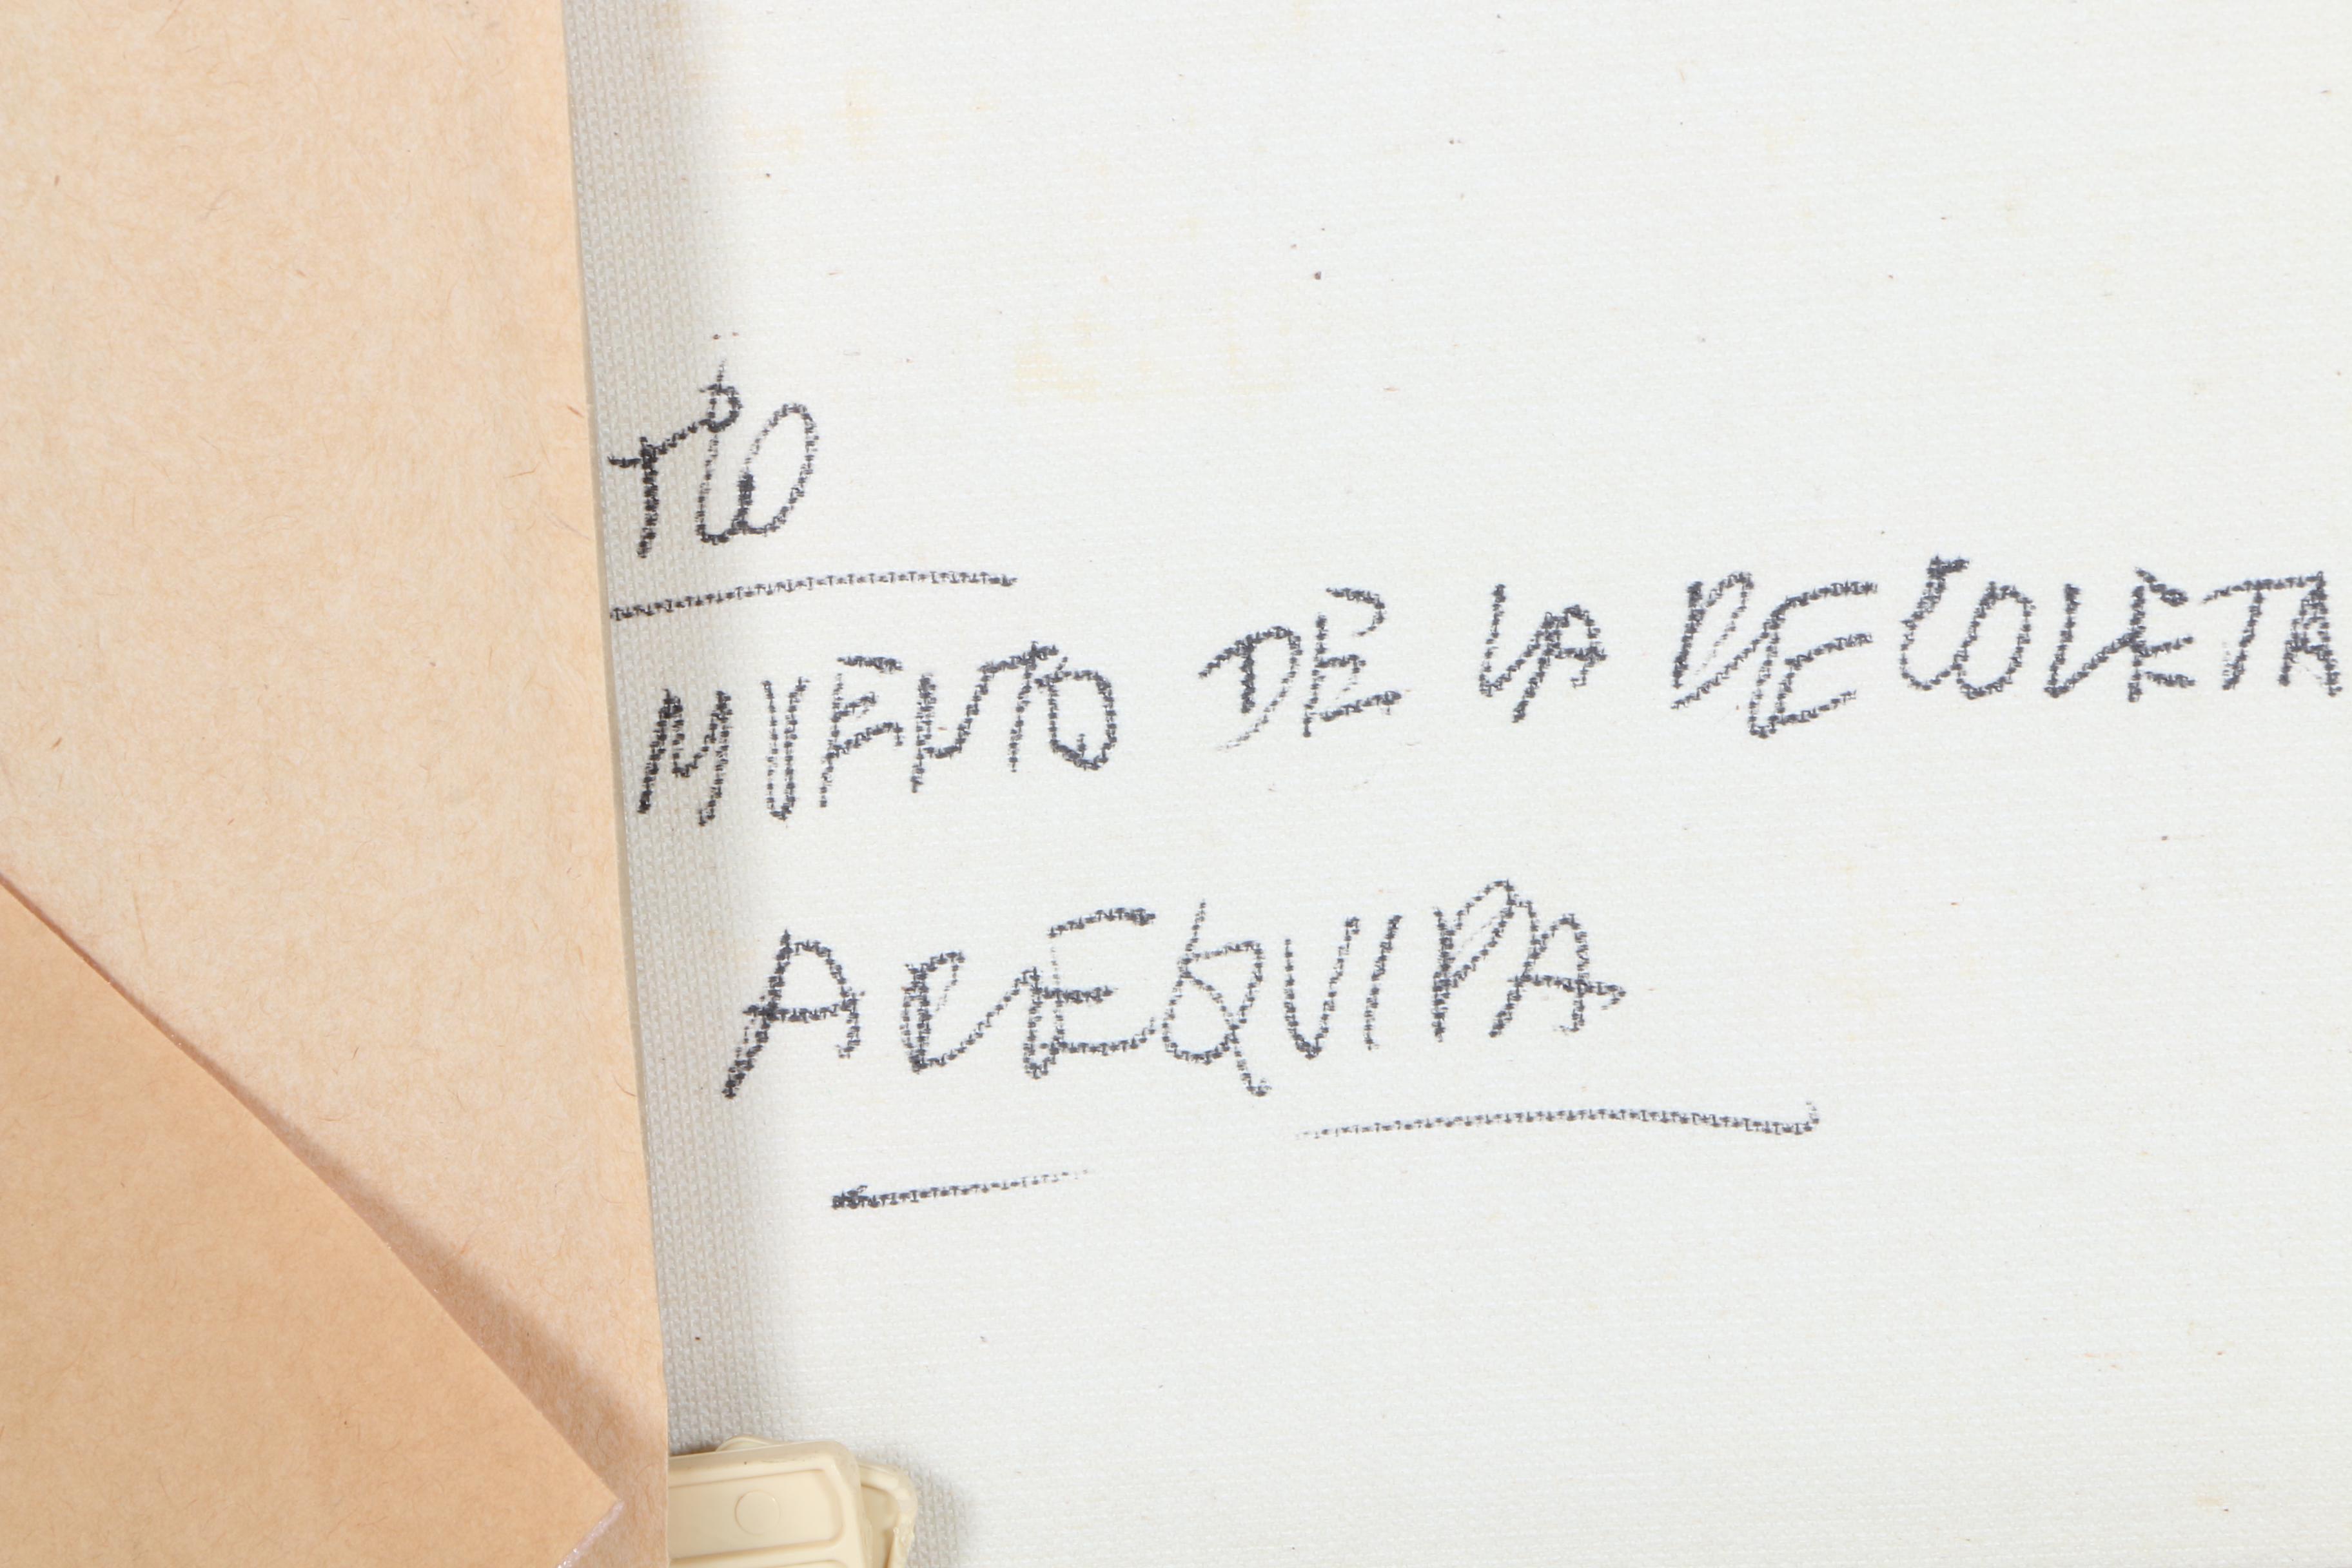 TIO
NVENTO DE LA RECOLETA
AREQUIPA